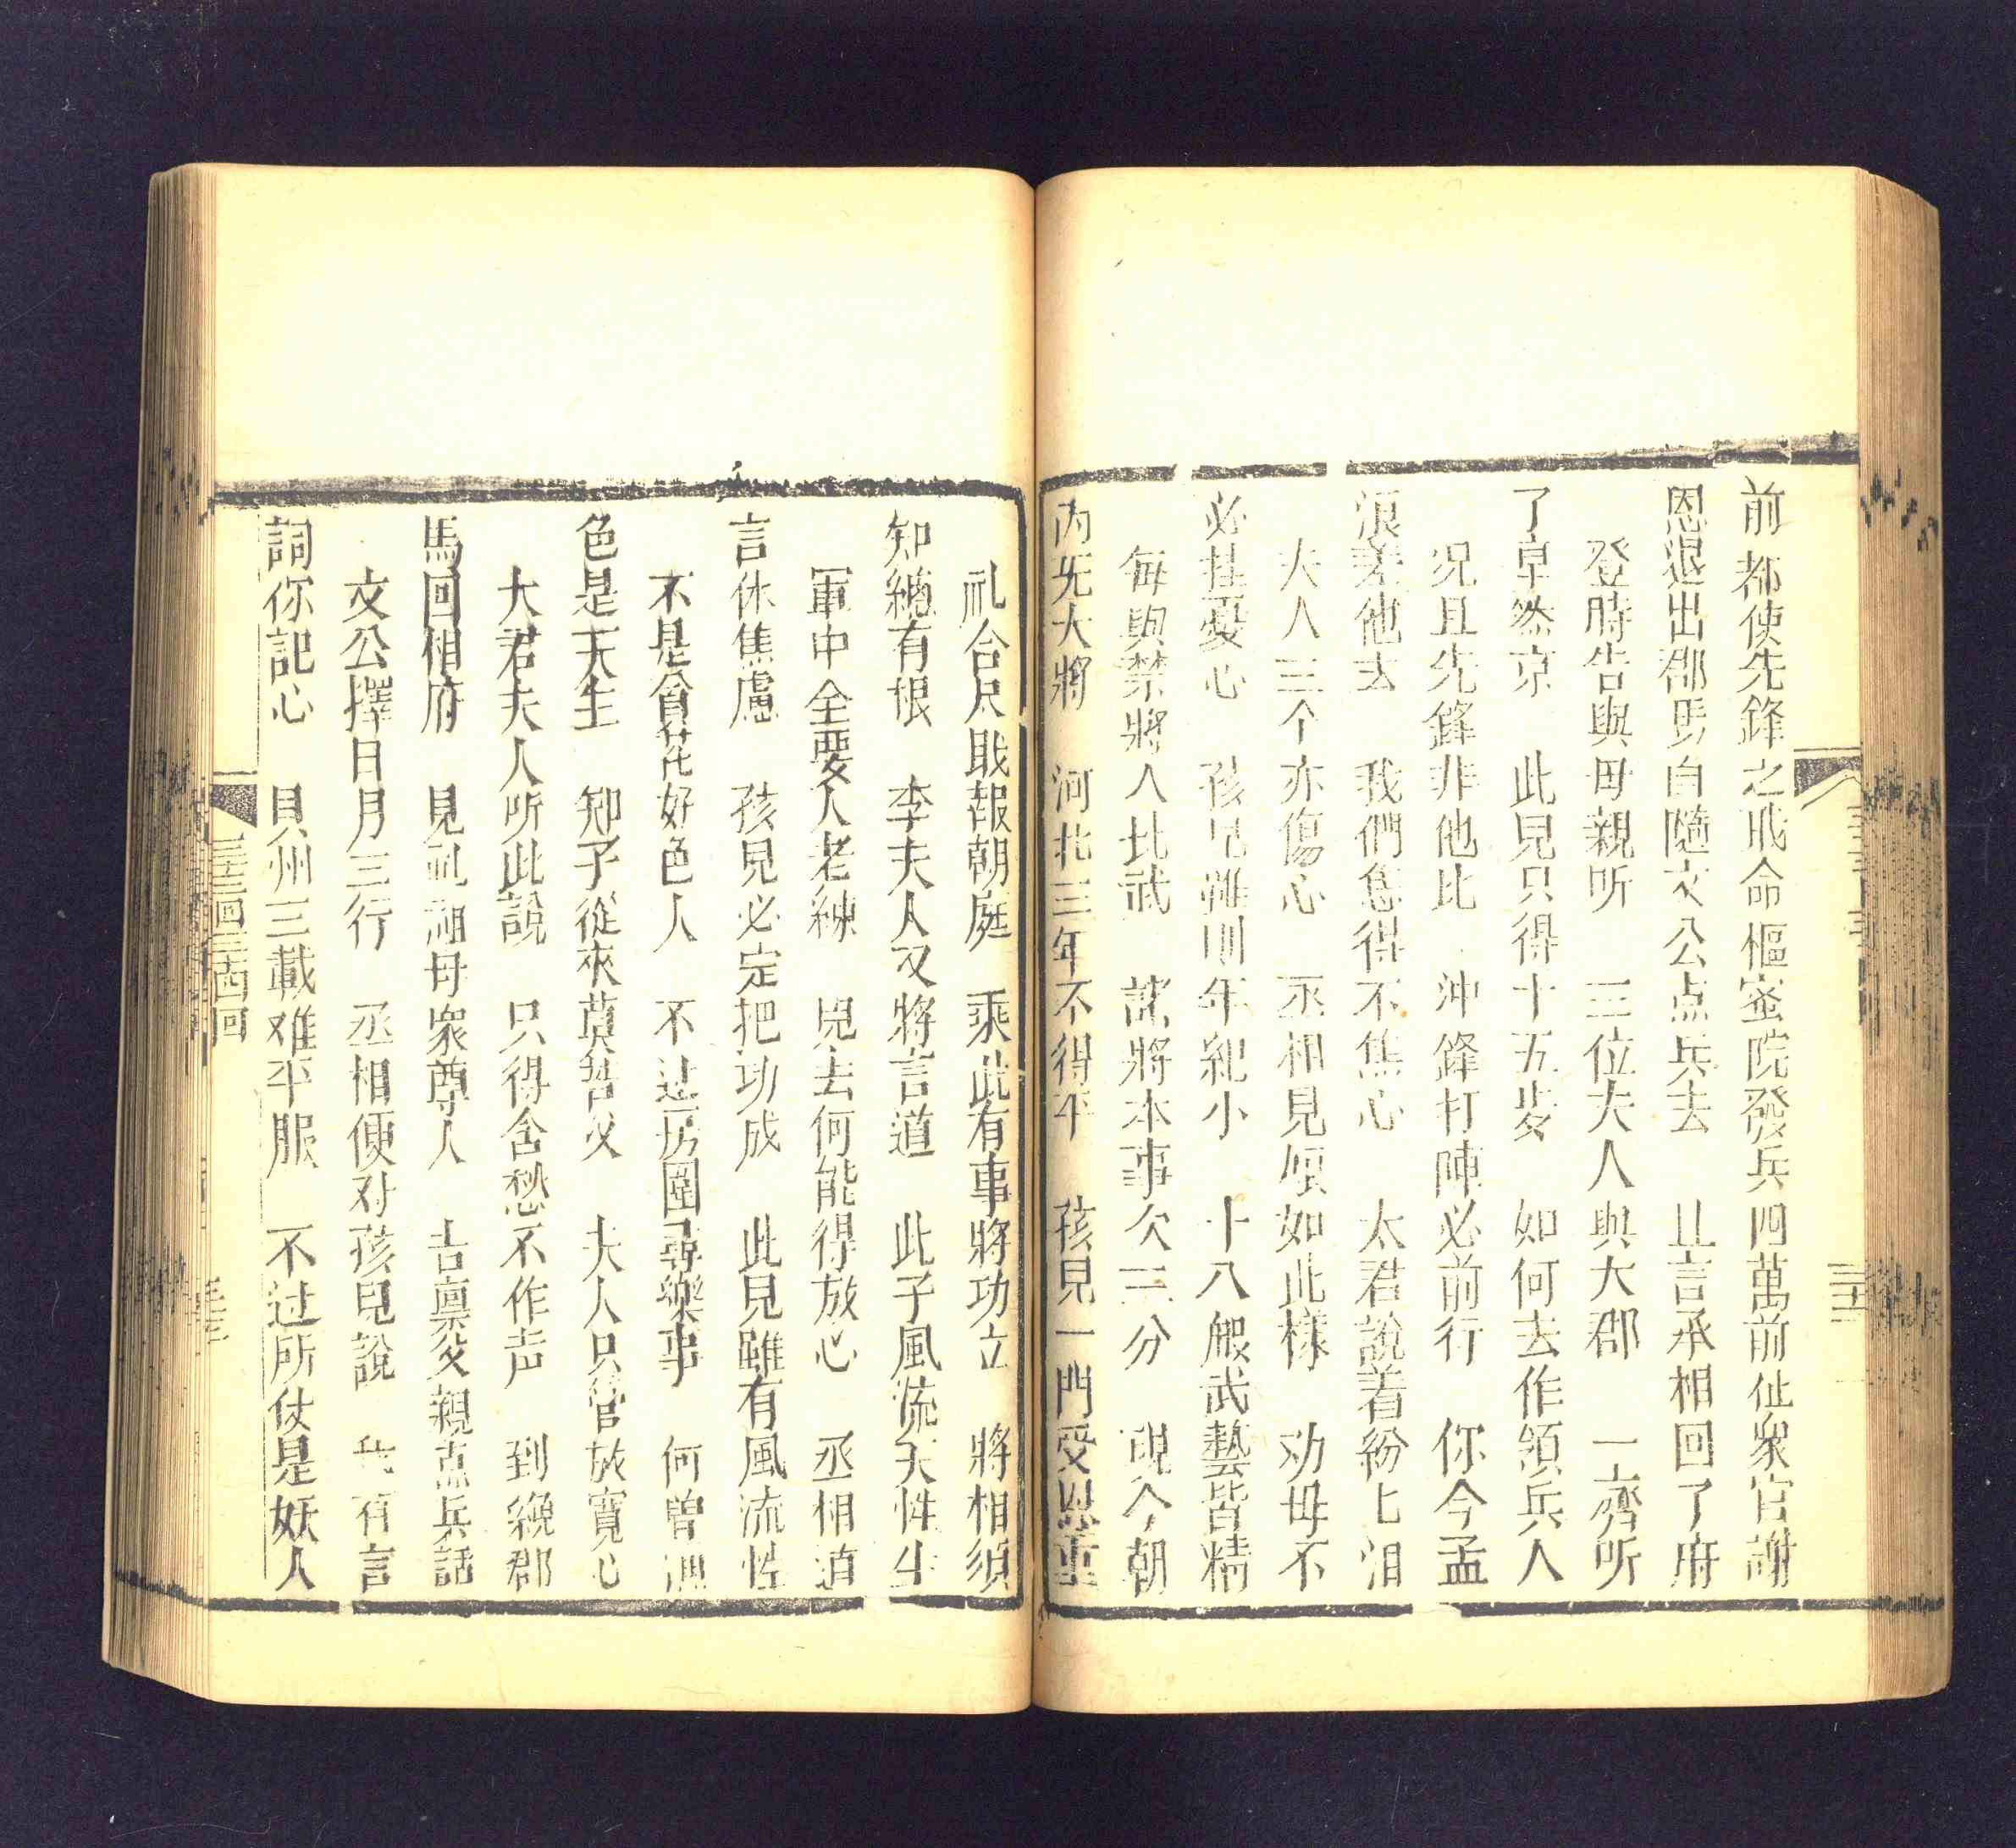 前都使先鋒之戝命樞蜜院發兵四萬前徃衆官謝
恩退出郡馬自隨文公点兵去 且言承相回了府
登時告與母親听 三位夫人與大郡 一齊听
了卓然京 此兒只得十五岁 如何去作領兵人
况且先鋒非他比 沖鋒打陣必前行 你今孟
浪差他去 我們怎得不焦心 太君說着紛匕泪
夫人三个亦傷心 丞相見旗如此樣 劝母不
必挂憂心 孩兒雖則年紀小 十八般武藝皆精
每與禁將人比武 諸將本事欠三分 現今朝
内无大將 河北三年不得平 孩兒一門受恩重
礼合尽戝報朝庭 乘此有事將功立 將相須
知緫有恨 李夫人又將言道 此子風流天性生
軍中全要人老練 兒去何能得放心 丞相道
言休焦慮 孩兒必定把功成 此兒雖有風流性
不是貪花好色人 不过房圍尋樂事 何曾酒
色是天生 知子從來莫若父 夫人只管放寬心
大君夫人听此說 只得含愁不作声 到晚郡
馬回相府 見礼祖母衆尊人 古禀父親点兵話
文公擇日月三行 丞相便对孩兒說 我有言
詞你記心 貝州三載难平服 不过所仗是妖人
三十三回三十四回